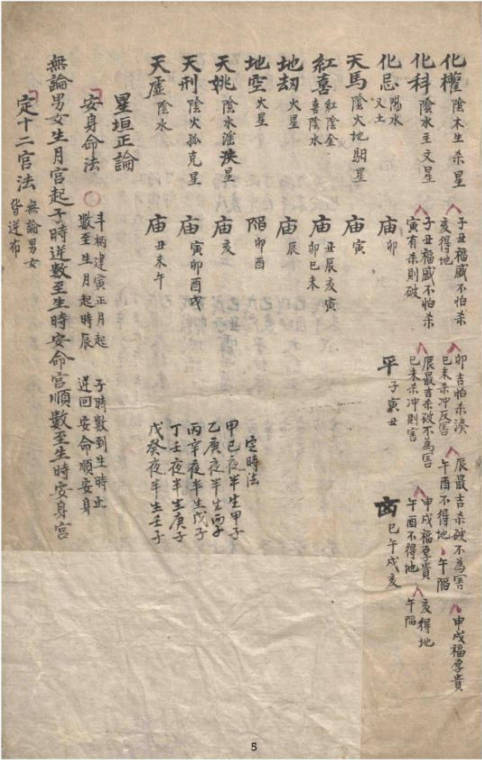 化權 陰木生杀星 子丑福盛不怕杀 亥得地 卯吉怕杀湊 巳未杀冲反害 辰最吉杀破不為害 午酉不得地 午陷 申戌福享貴
化科 陰水主文星 子丑福盛不怕杀 寅有杀則破 辰最吉杀破不為害 巳未杀冲則害 申戌福享貴 午酉不得地 亥得地 午陷
化忌 陽水 又土 庙 卯 平 子寅丑 凶 巳午戌亥
天馬 陰火地馹星 庙 寅
紅喜 紅陰金 喜陰水 庙 丑辰亥寅 卯巳未
地刼 火星 庙 辰
地空 火星 陷 卯酉
天姚 陰水淫泆星 庙 亥
天刑 陰火孤克星 庙 寅卯酉戌
天虛 陰水 庙 丑未午
定時法
甲己夜半生甲子
乙庚夜半生丙子
丙辛夜半生戊子
丁壬夜半生庚子
戊癸夜半生壬子
星垣正論
安身命法 斗柄建寅正月起 數至生月起時辰 子時數到生時止 逆回安命順安身
無論男女生月宮起子時逆數至生時安命宮順數至生時安身宮
定十二宮法 無論男女 皆逆布
5